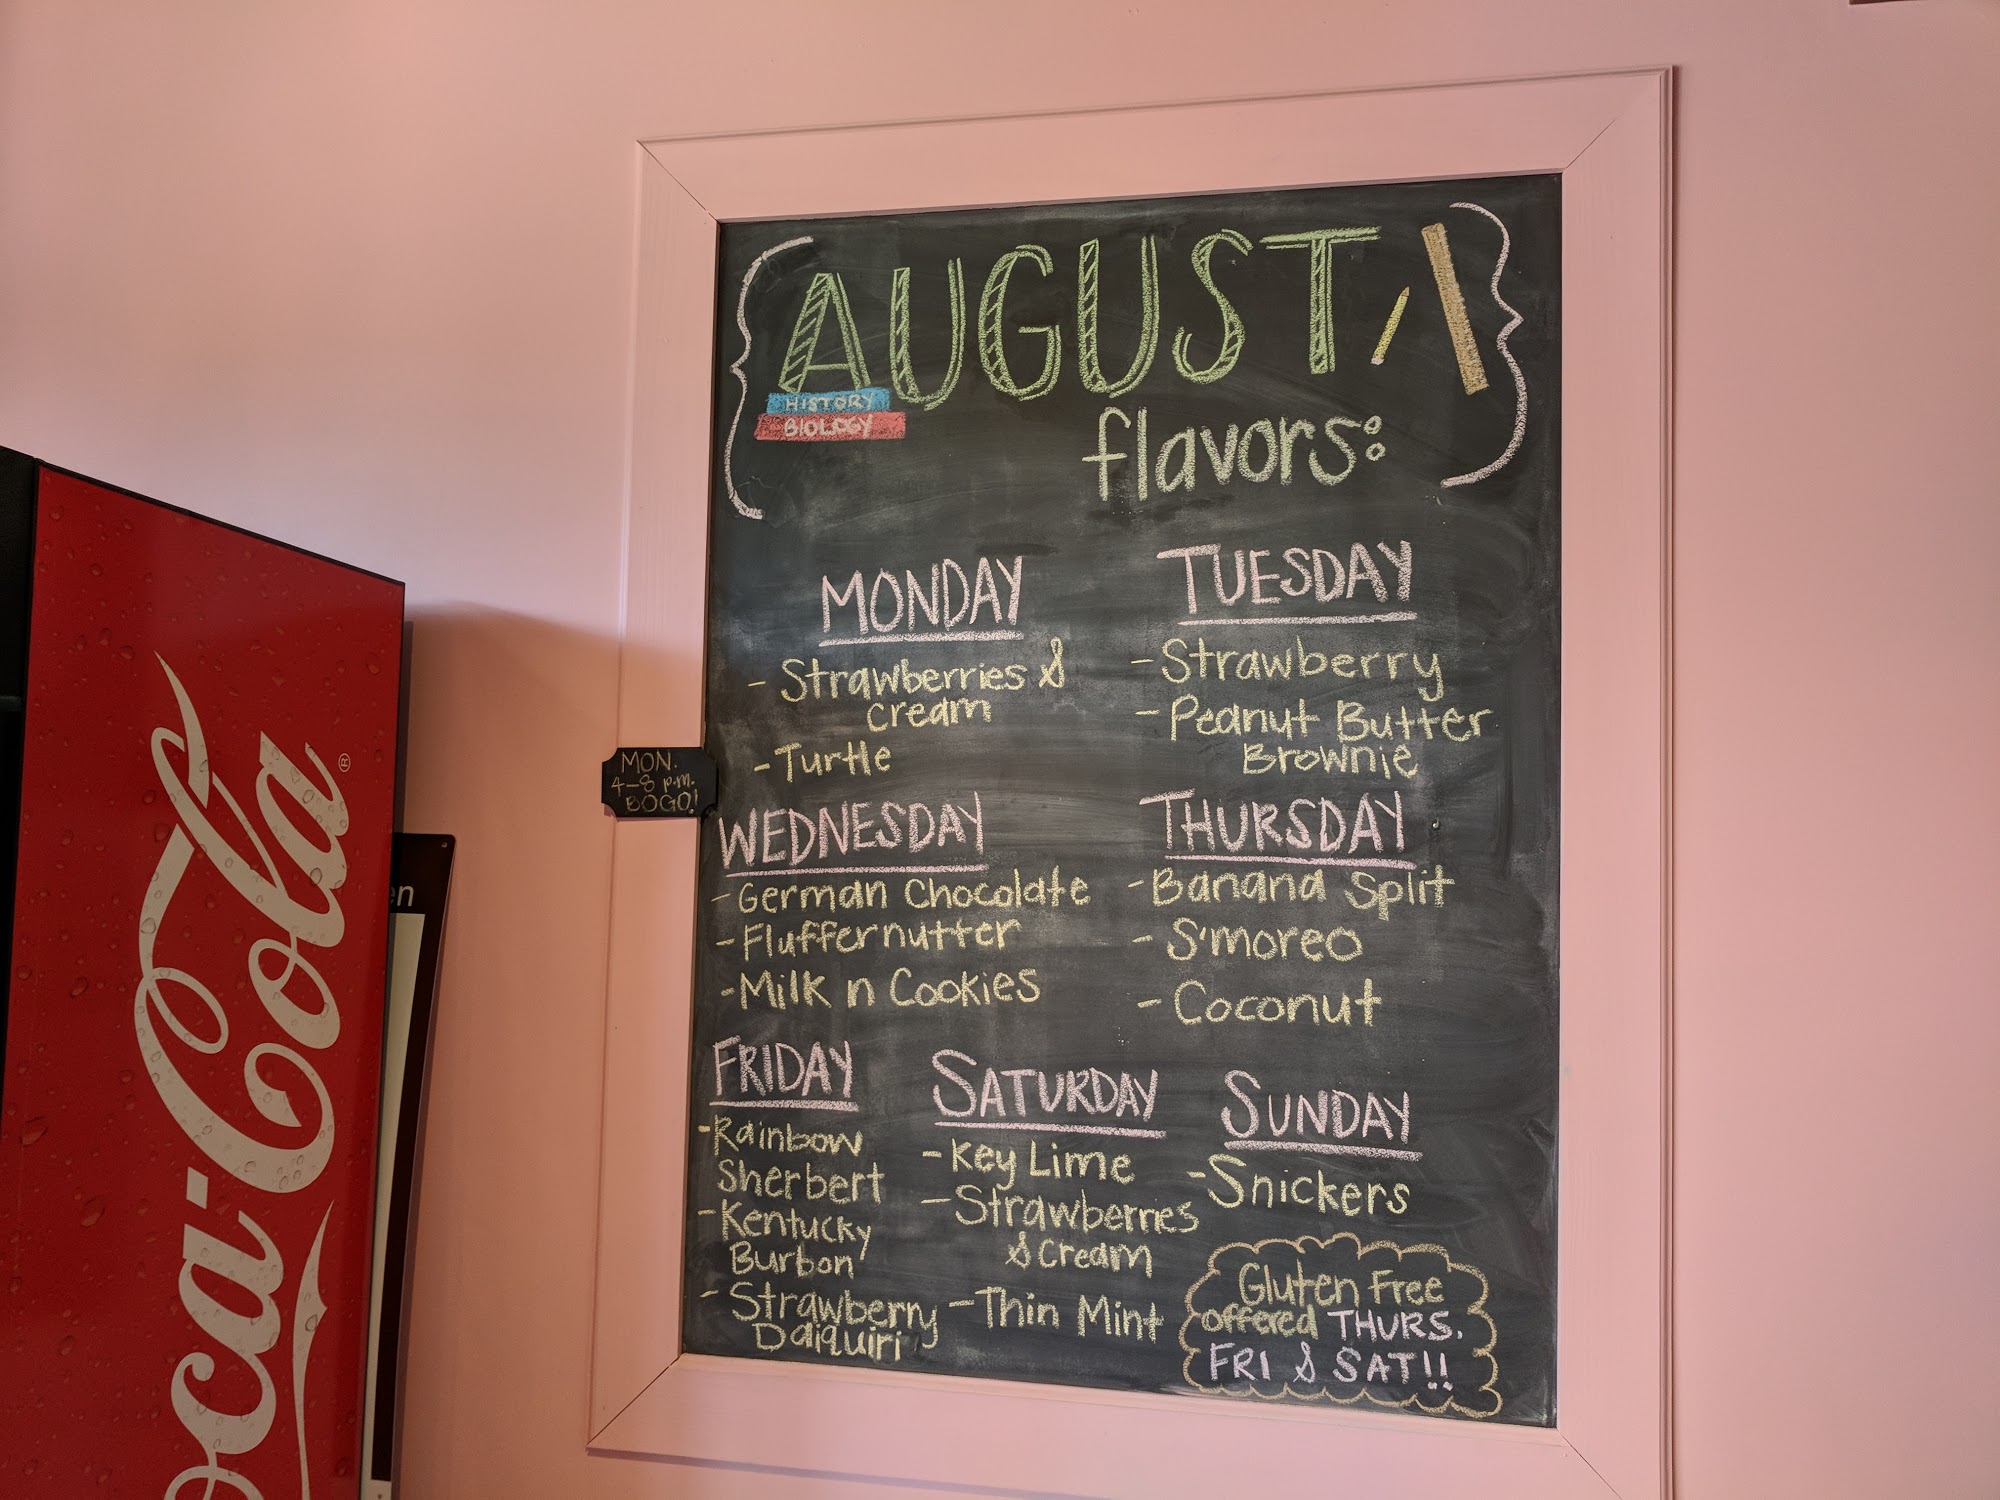 AUGUST
HISTORY
BIOLOGY
flavors:
MONDAY
- Strawberries &
cream
- Turtle
TUESDAY
- Strawberry
- Peanut Butter
Brownie
MON.
4-8 p.m.
BOGO!
WEDNESDAY
- German Chocolate
- Fluffernutter
- Milk n Cookies
THURSDAY
- Banana Split
- S'moreo
- Coconut
FRIDAY
- Rainbow
Sherbert
- Kentucky
Burbon
- Strawberry
Daiquiri
SATURDAY
- Key Lime
- Strawberries
& Cream
- Thin Mint
SUNDAY
- Snickers
Gluten Free
offered THURS.
FRI & SAT!!
oca-Cola®
en